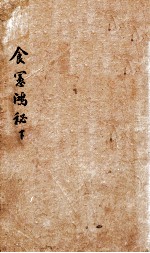 食憲鴻秘